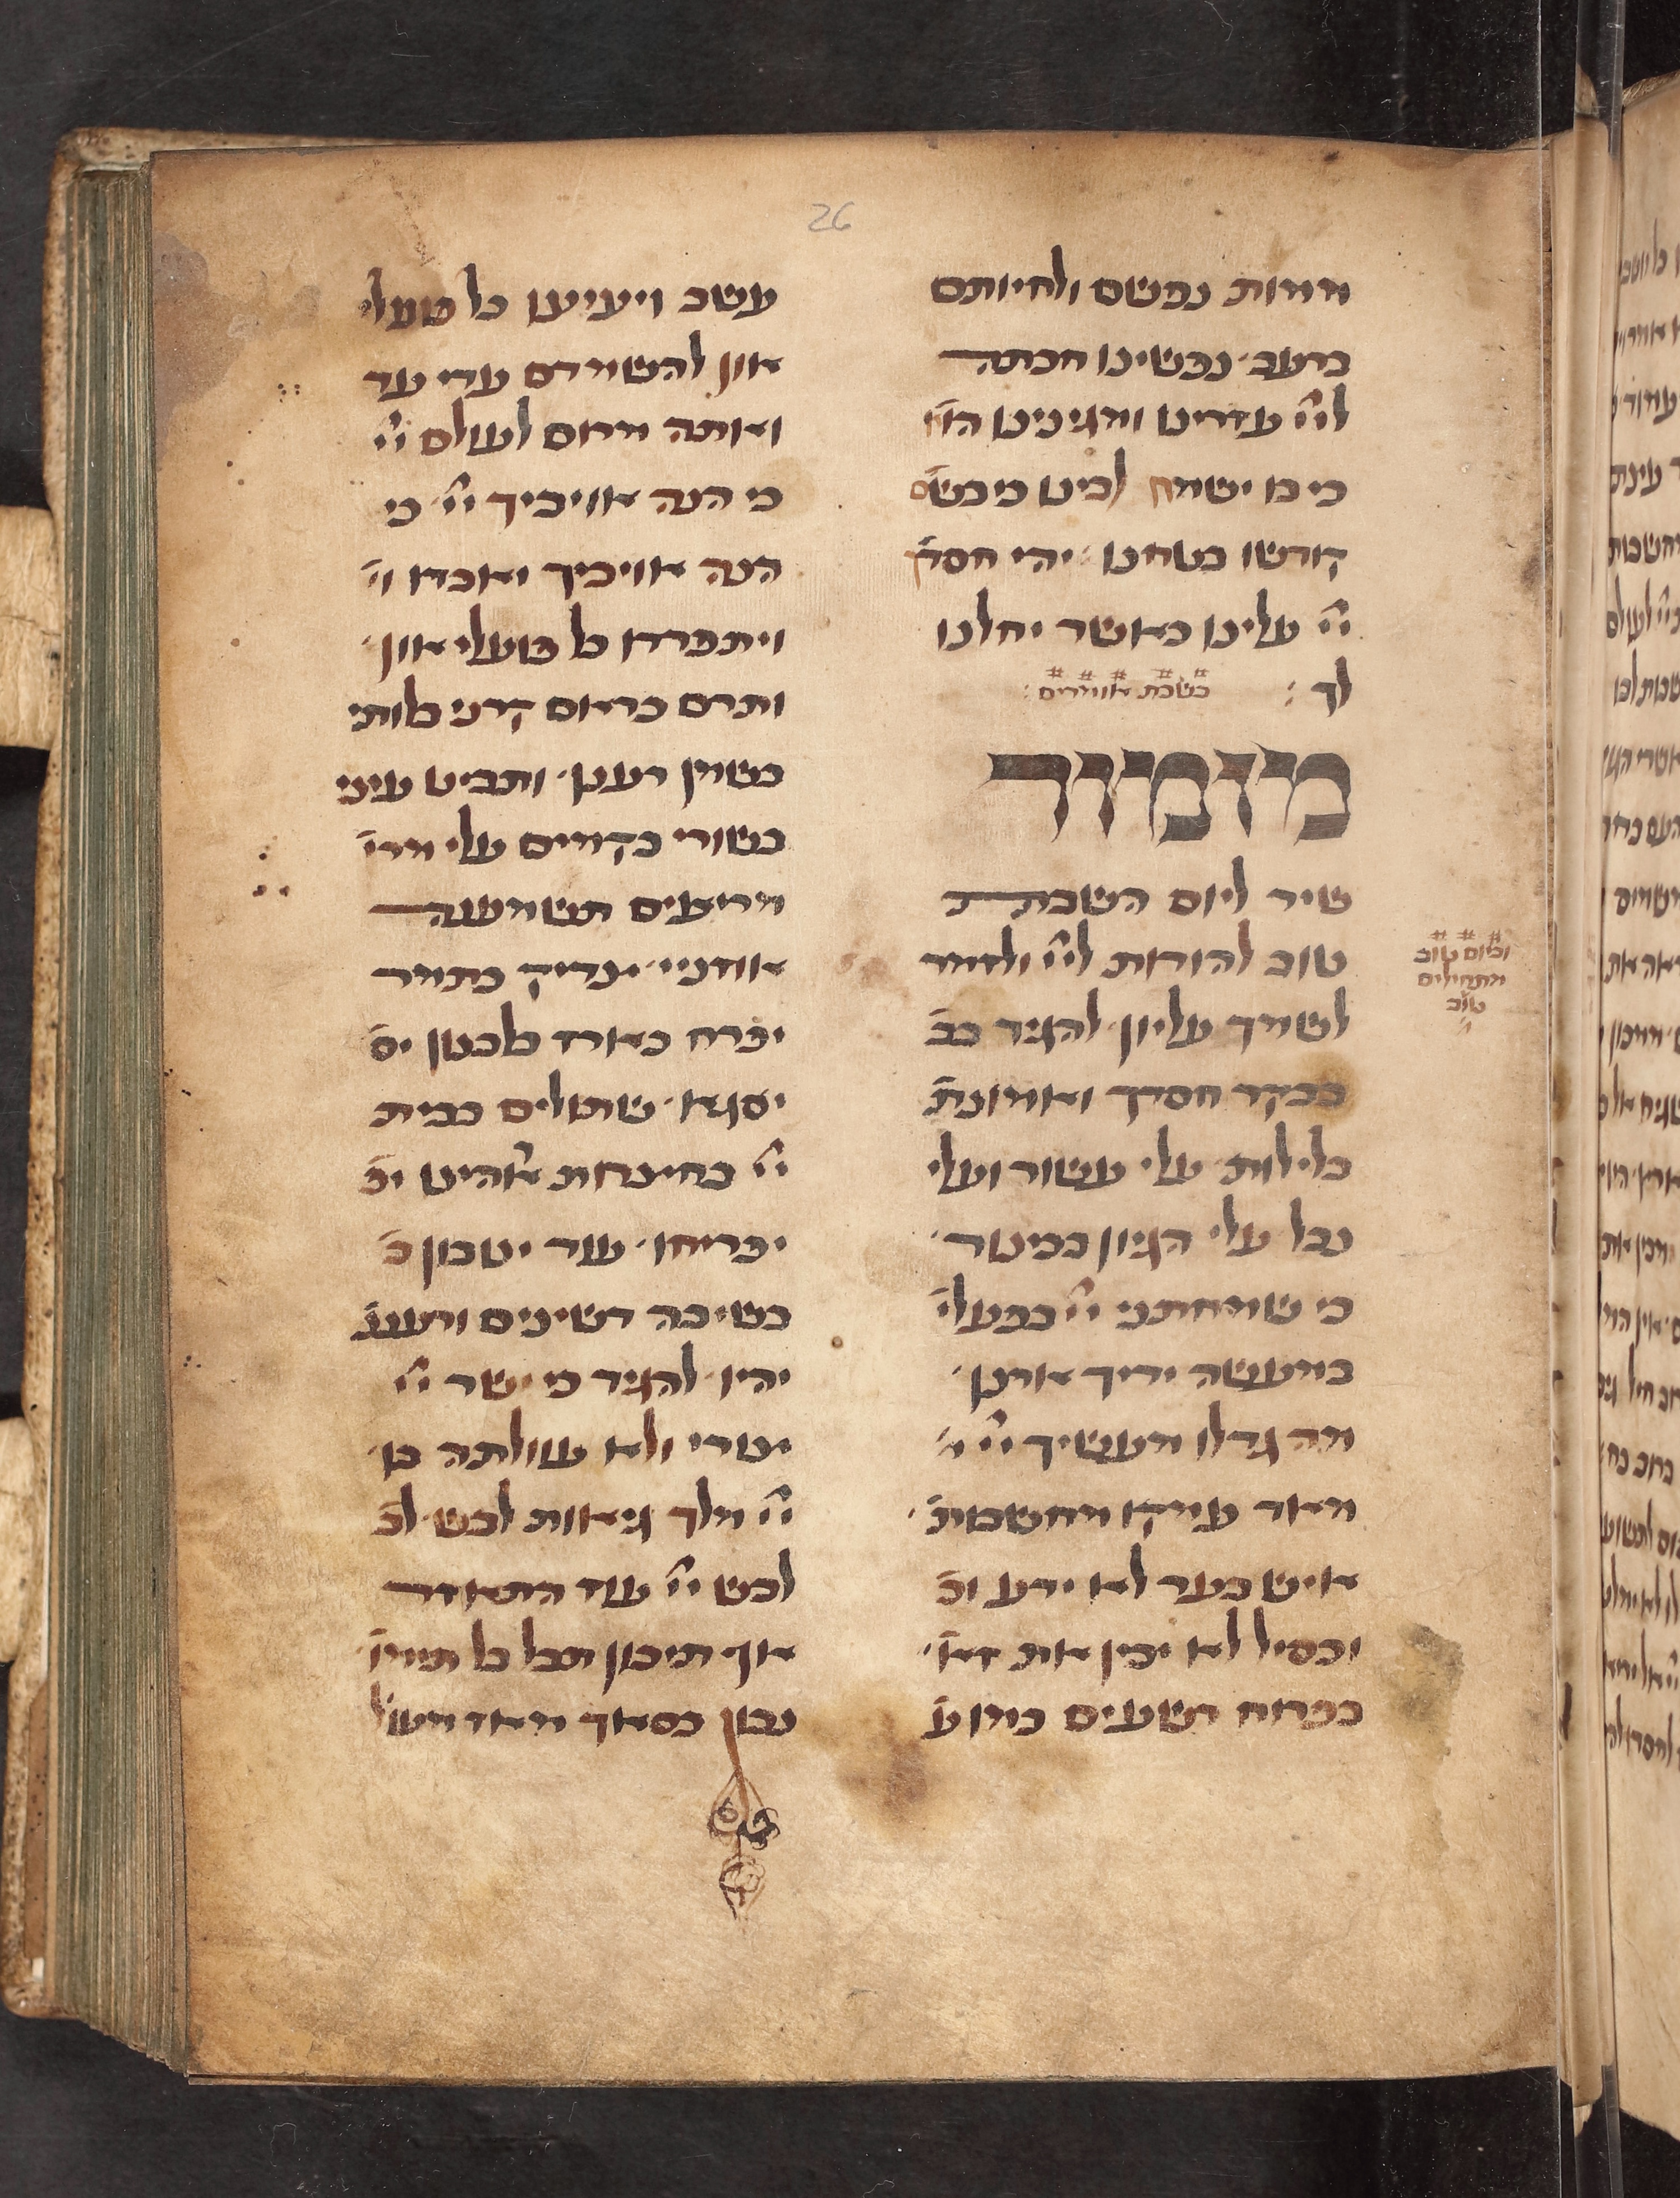 26
ממות נפשם ולחיותם
ברעב׳ נפשינו חכתה
לייי עזרינו ומגינינו הו׳
כי בו ישמח לבינו כי בש׳
קדשו בטחנו׳ יהי חסד׳
ייי עלינו כאשר יחלנו
לך׃ בשבת אומרים׃
מזמור
שיר ליום השבת
טוב להודות לייי ולזמר
לשמך עליון׳ להגיד בב׳
בבקר חסדך ואמונת׳
בלילות׳ עלי עשור ועלי
נבל עלי הגיון בכינור׳
כי שמחתני ייי בפעל׳
במעשה ידיך ארנן׳
מה גדלו מעשיך ייי׳
מאד עמקו מחשבות׳
איש בער לא ידע וכ׳
וכסיל לא יבין את זא׳
בפרוח רשעים כמו ע׳
וביום טוב
מתחילים
טוב
עשב ויציצו כל פועלי
און להשמדם עדי עד
ואתה מרום לעולם ייי
כי הנה אויביך ייי׳ כי
הנה אויביך יאבדו וי׳
ויתפרדו כל פועלי און׳
ותרם כראם קרני בלותי
בשמן רענן׳ ותביט עיני
בשורי בקמים עלי מר׳
מרעים תשמענה
אזניי׳ צדיק כתמר
יפרח כארז בלבנון יס׳
ישגא׳ שתולים בבית
ייי בחצרות אלהינו יפ׳
יפריחו׳ עוד ינובון ב׳
בשיבה דשינים ורעננ׳
יהיו׳ להגיד כי ישר ייי
צורי ולא עולתה בו׳
ייי מלך גיאות לבש לב׳
לבש ייי עוז התאזר
אף תיכון תבל בל תימו׳
נכון כסאך מאז מעול׳